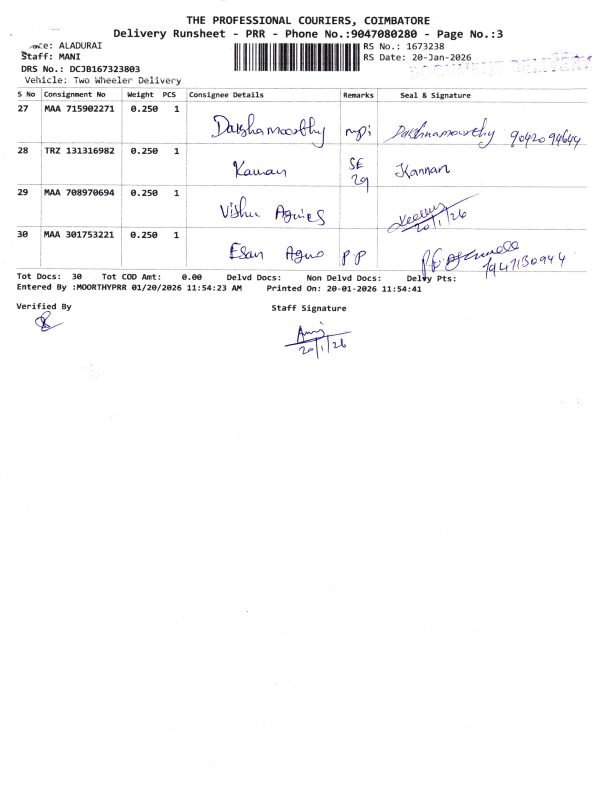 THE PROFESSIONAL COURIERS, COIMBATORE
Delivery Runsheet - PRR - Phone No.:9047080280 - Page No.:3
ce: ALADURAI RS No.: 1673238
Staff: MANI RS Date: 20-Jan-2026
DRS No.: DCJB167323803
Vehicle: Two Wheeler Delivery
S No Consignment No Weight PCS Consignee Details Remarks Seal & Signature
27 MAA 715902271 0.250 1 Dakshamoorthy Dakhnamourthy
28 TRZ 131316982 0.250 1 Kannan SE 29 Kannan
29 MAA 708970694 0.250 1 Vishnu Agnies 20/1/26
30 MAA 301753221 0.250 1 Esan Agno P.P 7947130944
Tot Docs: 30 Tot COD Amt: 0.00 Delvd Docs: Non Delvd Docs: Delvy Pts:
Entered By :MOORTHYPRR 01/20/2026 11:54:23 AM Printed On: 20-01-2026 11:54:41
Verified By Staff Signature
20/1/26